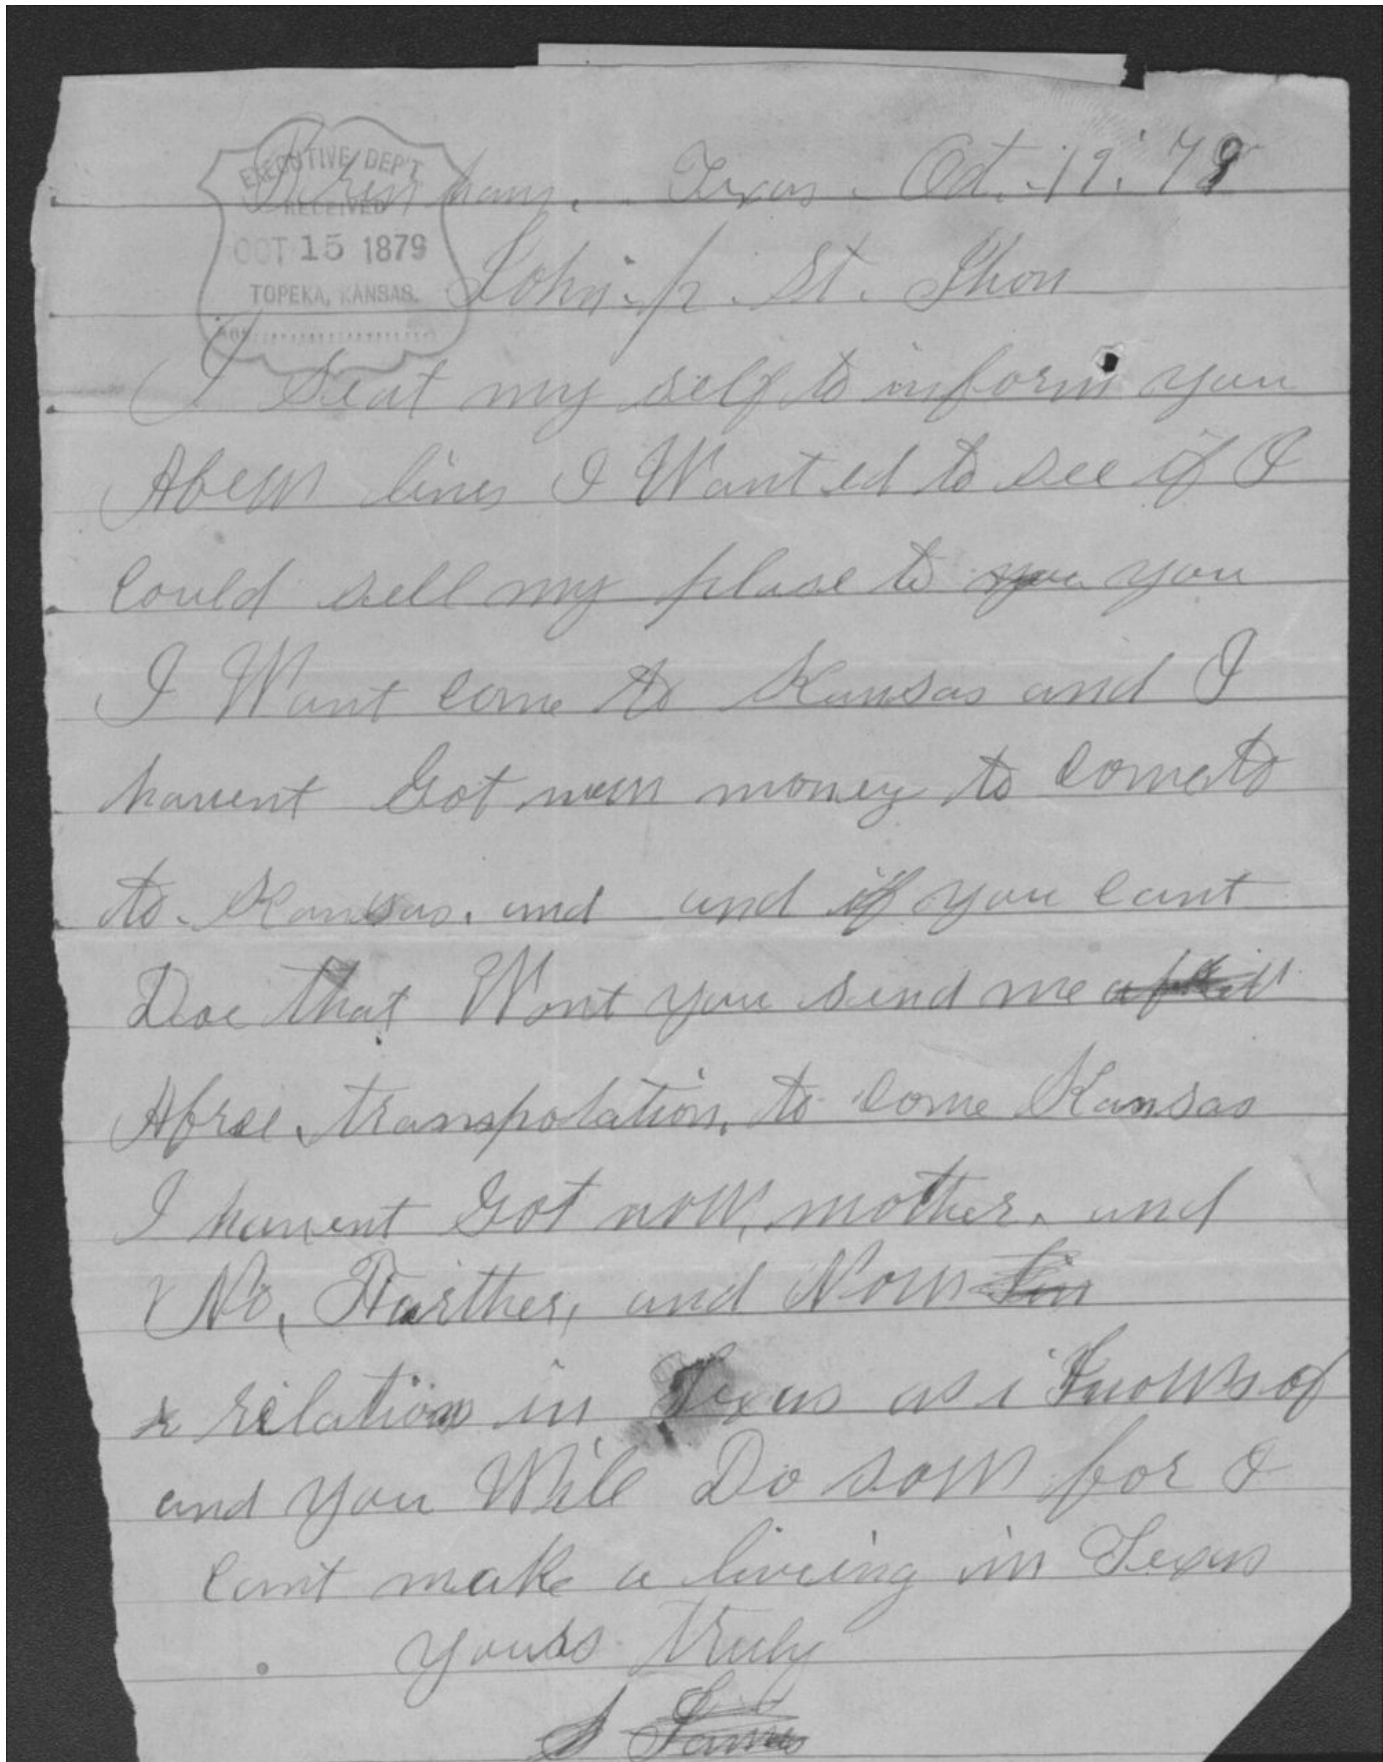 EXECUTIVE DEP'T
RECEIVED
OCT 15 1879
TOPEKA, KANSAS.
Texas. Oct. 12. 79
John. p. St. Jhon
I seat my self to inform you
Afew lines I Wanted to see if I
Could sell my plase to you you
I Want Come to Kansas and I
havent Got money to Come to
to. Kansas. and and if you Cant
Doe that Wont you send me
Afree transpotation, to Come Kansas
I havent Got now, mother. and
No, Farther, and Now
relation in Texas as i Knows of
and you Will Do sow for I
Cant make a liveing in Texas
yours truly